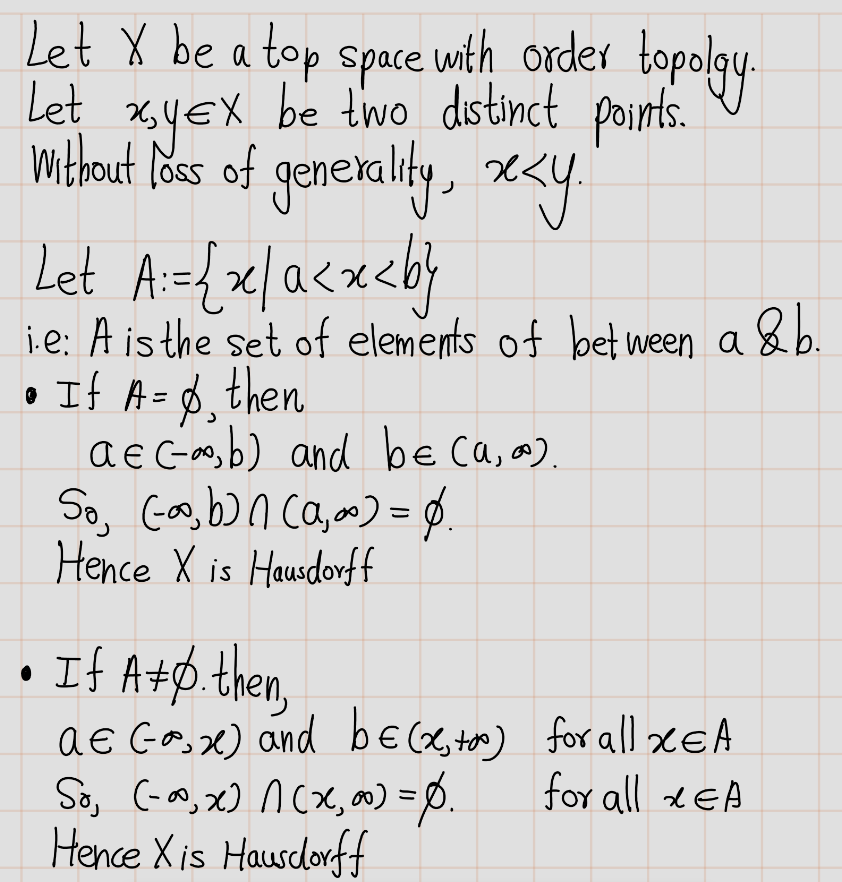 Let X be a top space with order topolgy.
Let x,y∈X be two distinct points.
Without loss of generality, x<y.
Let A:={x|a<x<b}
i.e: A is the set of elements of between a & b.
• If A=ϕ, then
a∈(-∞,b) and b∈(a,∞).
So, (-∞,b)∩(a,∞)=ϕ.
Hence X is Hausdorff
• If A≠ϕ. then,
a∈(-∞,x) and b∈(x,+∞) for all x∈A
So, (-∞,x)∩(x,∞)=ϕ. for all x∈A
Hence X is Hausdorff